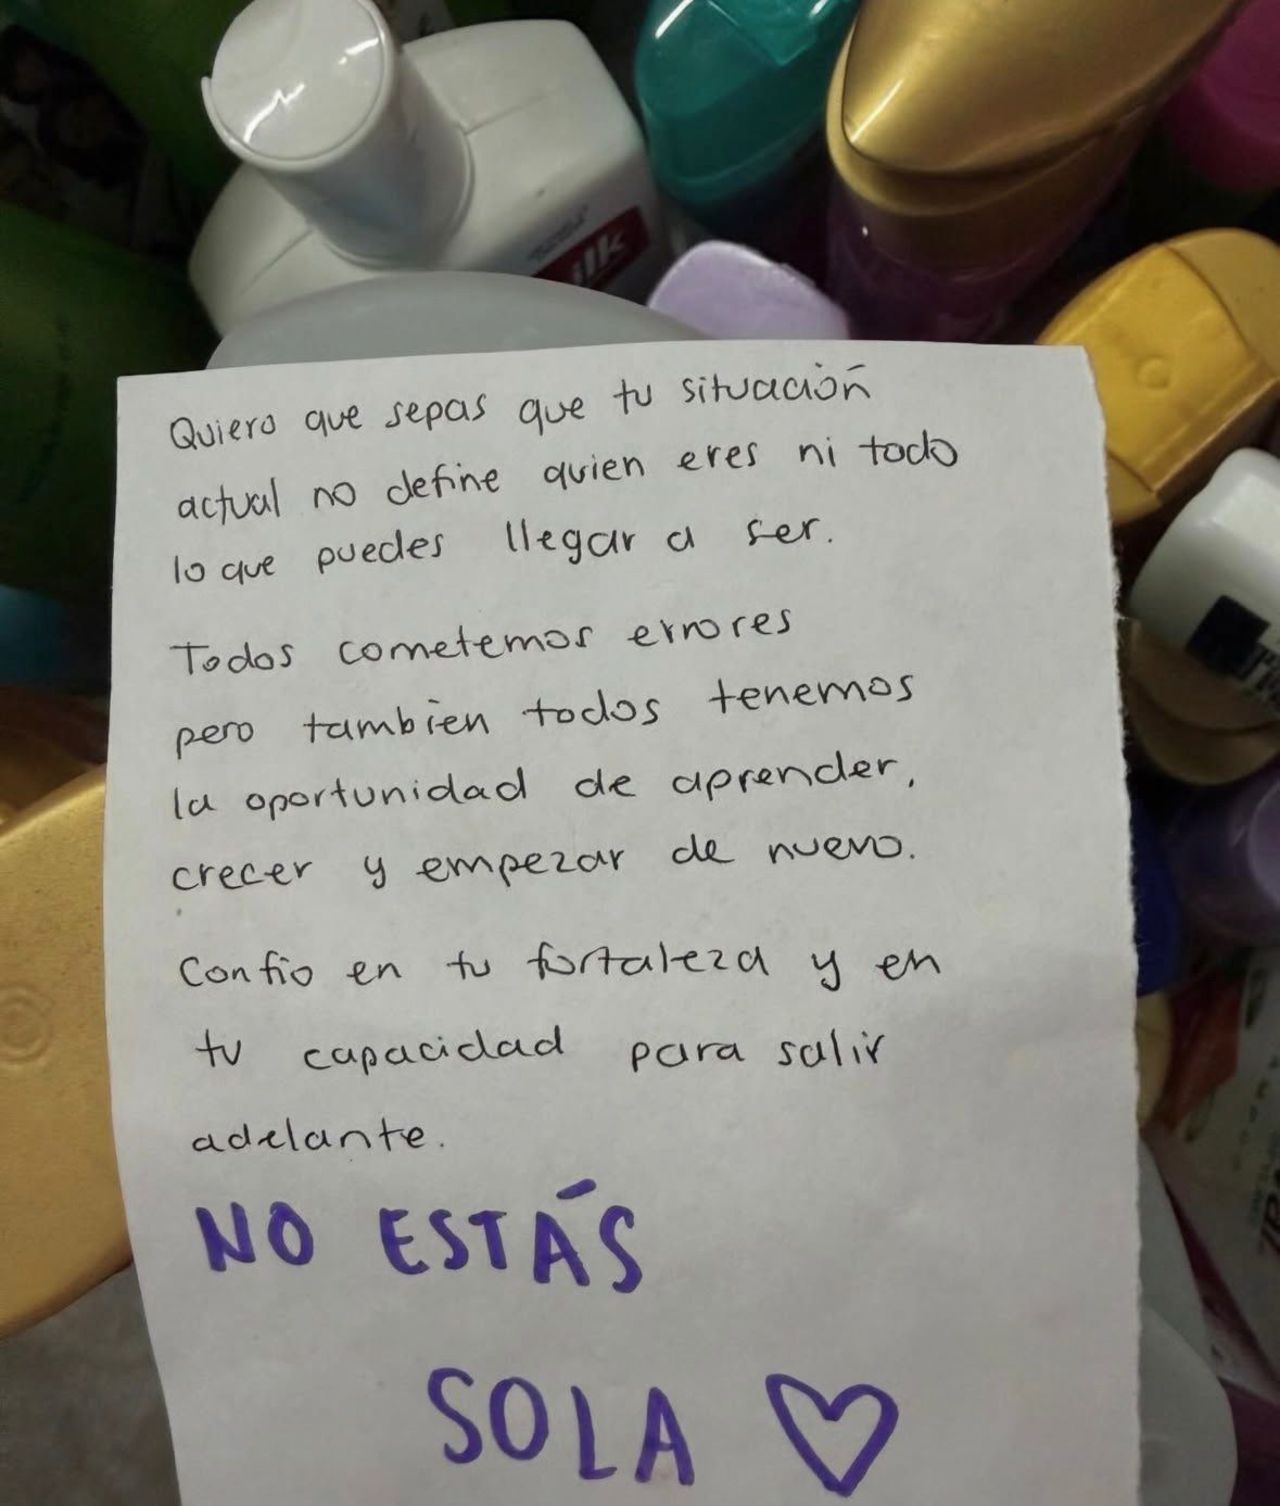 Quiero que sepas que tu situación
actual no define quien eres ni todo
lo que puedes llegar a ser.
Todos cometemos errores
pero tambien todos tenemos
la oportunidad de aprender,
crecer y empezar de nuevo.
Confio en tu fortaleza y en
tu capacidad para salir
adelante.
NO ESTÁS
SOLA